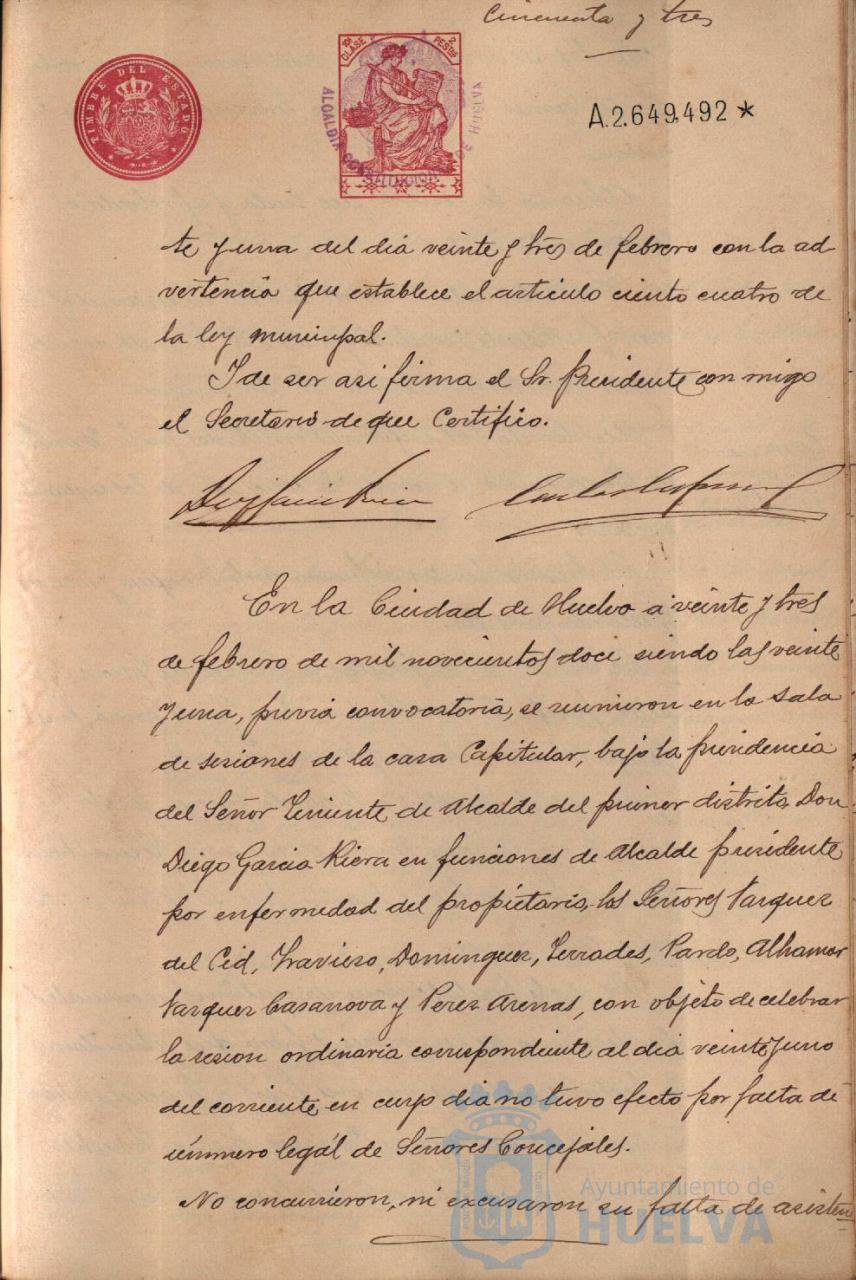 Cincuenta y tres
TIMBRE DEL ESTADO
10ª CLASE 2 PESTAS
ALCALDIA CONSTITUCIONAL DE HUELVA
A.2.649.492 *
te y una del dia veinte y tres de febrero con la ad
vertencia que establece el articulo ciento cuatro de
la ley municipal.
I de ser asi firma el Sr. Presidente con migo
el Secretario de que Certifico.
En la Ciudad de Huelva a veinte y tres
de febrero de mil novecientos doce siendo las veinte
y una, previa convocatoria, se reunieron en la Sala
de sesiones de la casa Capitular, bajo la presidencia
del Señor Teniente de Alcalde del primer distrito Don
Diego Garcia Riera en funciones de Alcalde presidente
por enfermedad del propietario, los Señores Vazquez
del Cid, Travieso, Dominguez, Terrades, Pardo, Alhamar
Vazquez Casanova y Perez Arenas, con objeto de celebrar
la sesion ordinaria correspondiente al dia veinte y uno
del corriente, en cuyo dia no tuvo efecto por falta de
número legal de Señores Concejales.
No concurrieron, ni excusaron su falta de asisten
Ayuntamiento de
HUELVA